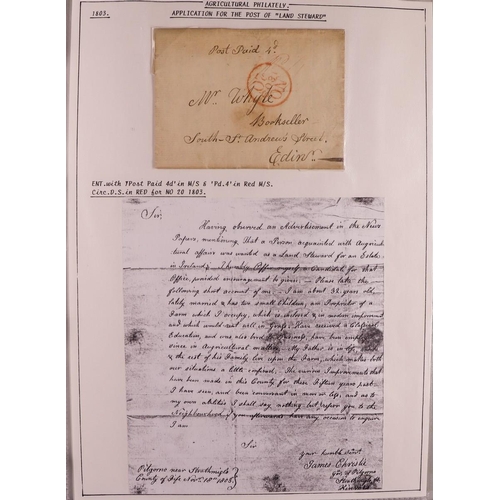 AGRICULTURAL PHILATELY.
1803. APPLICATION FOR THE POST OF "LAND STEWARD"
Post Paid 4d.
Mr. Whyte
Bookseller
South St. Andrews Street.
Edinr.
ENT.with 'Post Paid 4d' in M/S & 'Pd.4' in Red M/S.
Circ.D.S.in RED for NO 20 1803.
Sir,
Having observed an Advertisement in the News
Papers, mentioning that a Person acquainted with Agricul-
tural affairs was wanted as a Land Steward for an Estate
in Ireland, I hereby offer myself a Candidate for that
Office, provided encouragement is given. — Please take the
following short account of me. — I am about 32 years old,
lately married & has two small Children, am Proprietor of a
Farm which I occupy, which is inclosed & in modern improvement
and which would rent well in Grass. Have received a
Education, and was also bred to, have been employed
since in Agricultural matters. My Father is in life
& the rest of his Family live upon the Farm, which makes both
our situations a little confused. The various Improvements that
have been made in this County for these fifteen years past
I have seen, and been conversant in most of, and as to
my own abilities I shall say nothing but refer you to the
Neighbourhood if you afterwards have any occasion to enquire
I am
Sir
your humble Servt.
James Christie
Pilgorno near Strathmiglo
County of Fife Novr. 18th 1803.
of Pilgorno
Strathmiglo